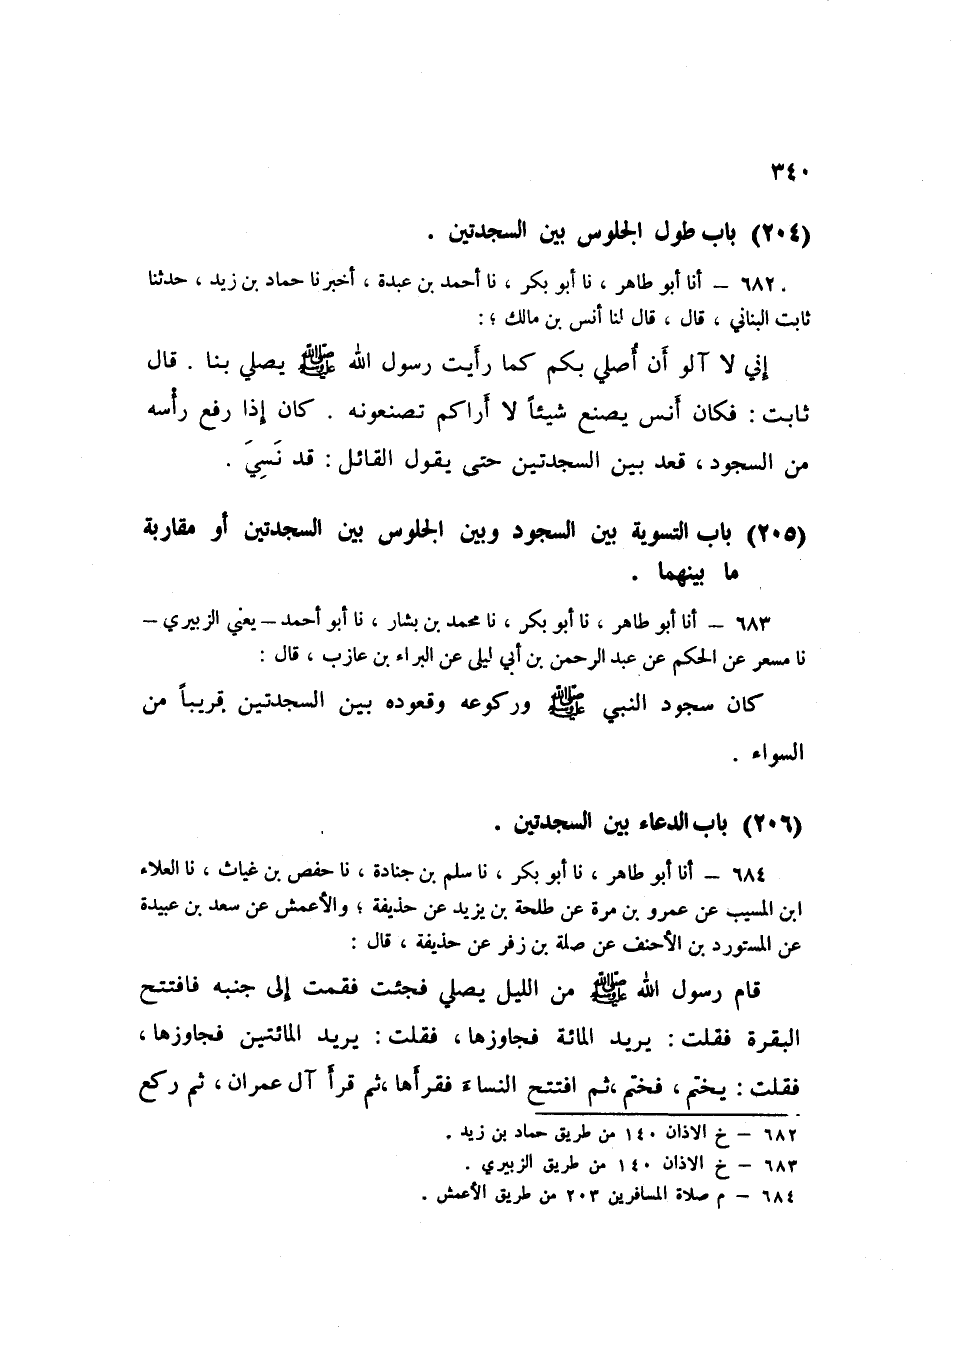 ٣٤٠
(٢٠٤) باب طول الجلوس بين السجدتين .
٦٨٢ – أنا أبو طاهر ، نا أبو بكر ، نا أحمد بن عبدة ، أخبرنا حماد بن زيد ، حدثنا
ثابت البناني ، قال ، قال لنا أنس بن مالك ؛ :
إني لا آلو أن أُصلي بكم كما رأَيت رسول الله ﷺ يصلي بنا . قال
ثابت : فكان أَنس يصنع شيئاً لا أَراكم تصنعونه . كان إذا رفع رأْسه
من السجود ، قعد بين السجدتين حتى يقول القائل : قد نَسِيَ .
(٢٠٥) باب التسوية بين السجود وبين الجلوس بين السجدتين أو مقاربة
ما بينهما .
٦٨٣ – أنا أبو طاهر ، نا أبو بكر ، نا محمد بن بشار ، نا أبو أحمد – يعني الزبيري –
نا مسعر عن الحكم عن عبد الرحمن بن أبي ليلى عن البراء بن عازب ، قال :
كان سجود النبي ﷺ وركوعه وقعوده بين السجدتين قريباً من
السواء .
(٢٠٦) باب الدعاء بين السجدتين .
٦٨٤ – أنا أبو طاهر ، نا أبو بكر ، نا سلم بن جنادة ، نا حفص بن غياث ، نا العلاء
ابن المسيب عن عمرو بن مرة عن طلحة بن يزيد عن حذيفة ؛ والأعمش عن سعد بن عبيدة
عن المستورد بن الأحنف عن صلة بن زفر عن حذيفة ، قال :
قام رسول الله ﷺ من الليل يصلي فجئت فقمت إلى جنبه فافتتح
البقرة فقلت : يريد المائة فجاوزها ، فقلت : يريد المائتين فجاوزها ،
فقلت : يختم ، فختم ، ثم افتتح النساء فقرأها ، ثم قرأ آل عمران ، ثم ركع
٦٨٢ – خ الاذان ١٤٠ من طريق حماد بن زيد .
٦٨٣ – خ الاذان ١٤٠ من طريق الزبيري .
٦٨٤ – م صلاة المسافرين ٢٠٣ من طريق الأعمش .